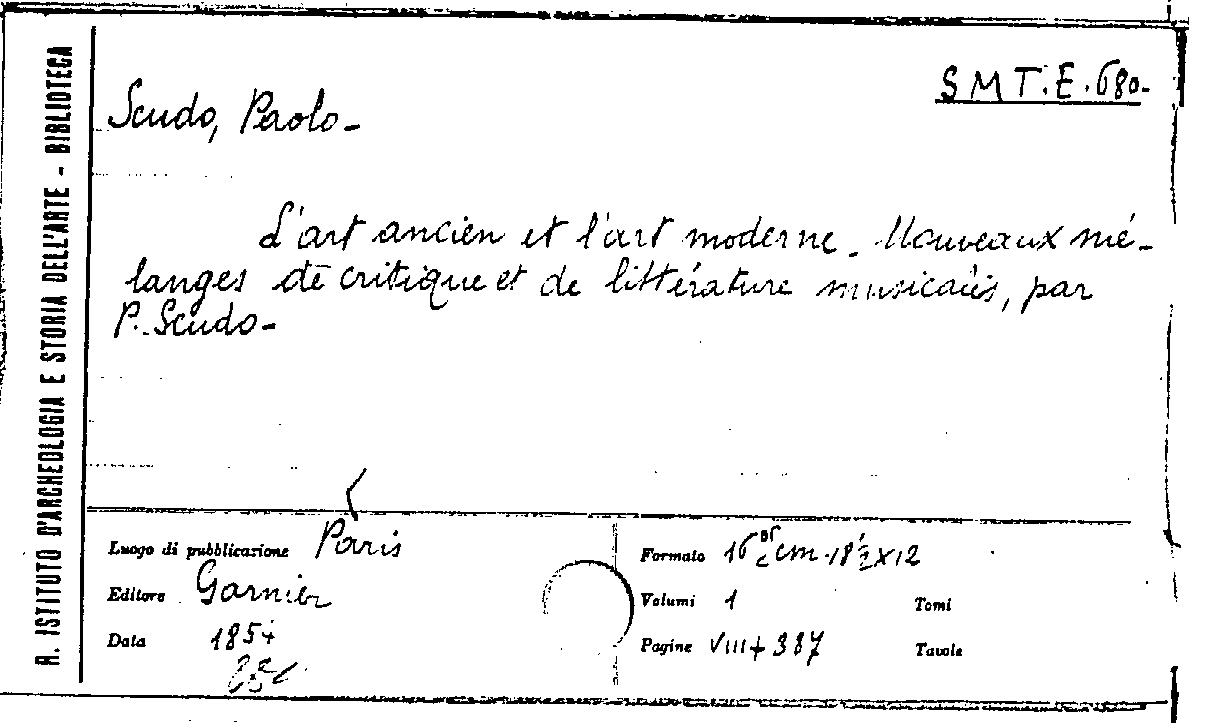 R. ISTITUTO D'ARCHEOLOGIA E STORIA DELL'ARTE - BIBLIOTECA
S M T. E. 680-
Scudo, Paolo-
L'art ancien et l'art moderne. Nouveaux mé-
langes de critique et de littérature musicales, par
P. Scudo-
Luogo di pubblicazione Paris
Editore Garnier
Data 1854
Formato 16° cm. 18½ x 12
Volumi 1 Tomi
Pagine VIII + 387 Tavole